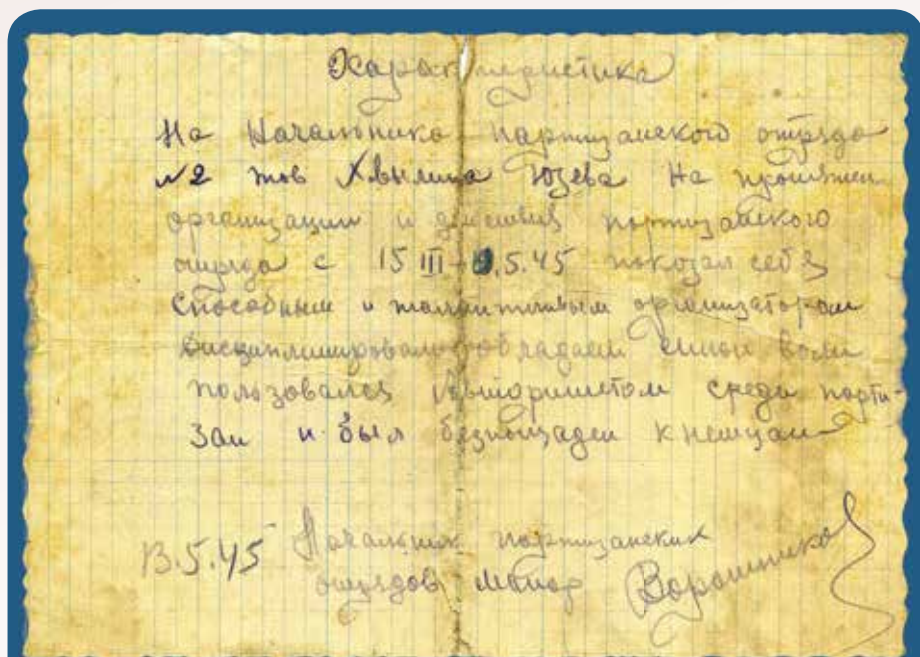 Характеристика
На Начальника партизанского отряда
№2 тов Хвылина Юзева На протяжен
организации и действия партизанского
отряда с 15 III - 9.5.45 показал себя
Способным и талантливым организатором
дисциплинирован обладает силой воли
пользовался Авторитетом среди парти-
зан и был безпощаден к немцам
13.5.45 Начальник партизанских
отрядов майор Ворошников